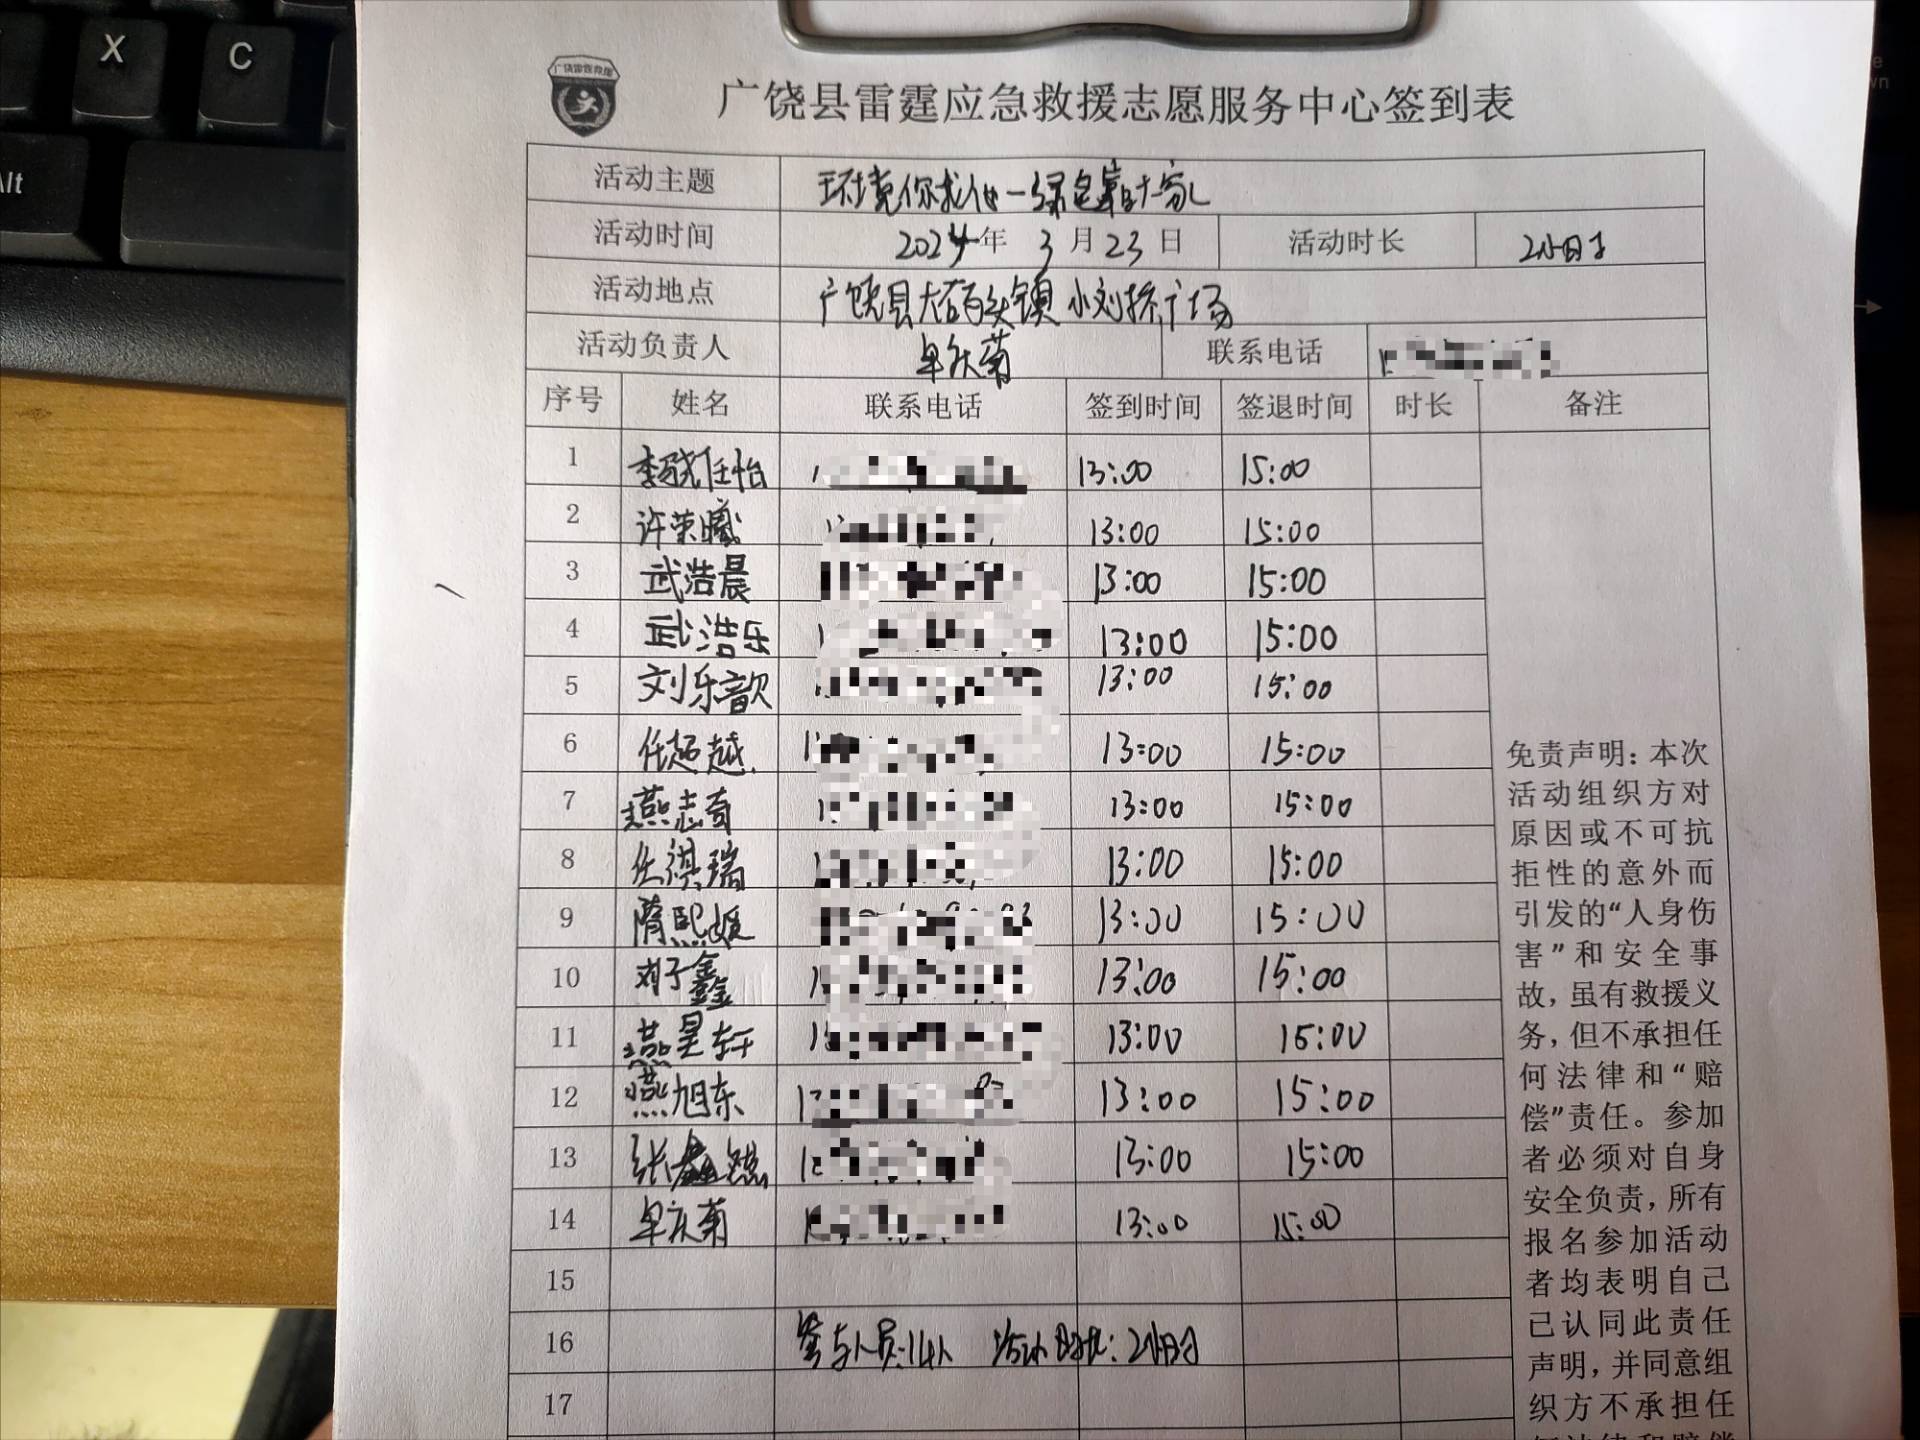 X
C
Alt
广饶雷霆救援
广饶县雷霆应急救援志愿服务中心签到表
活动主题 环境你我他一绿色靠大家
活动时间 2024年 3月23日 活动时长 2小时
活动地点 广饶县大码头镇 小刘桥广场
活动负责人 牟庆菊 联系电话
序号 姓名 联系电话 签到时间 签退时间 时长 备注
1 李晓任怡 13:00 15:00
2 许荣曦 13:00 15:00
3 武浩晨 13:00 15:00
4 武浩乐 13:00 15:00
5 刘乐歆 13:00 15:00
6 任超越 13:00 15:00
7 燕志奇 13:00 15:00
8 任祺瑞 13:00 15:00
9 隋熙媛 13:00 15:00
10 刘子鑫 13:00 15:00
11 燕昊轩 13:00 15:00
12 燕旭东 13:00 15:00
13 张 13:00 15:00
14 牟庆菊 13:00 15:00
15
16 参与人员:14人 活动时长:2小时
17
免责声明:本次
活动组织方对
原因或不可抗
拒性的意外而
引发的“人身伤
害”和安全事
故,虽有救援义
务,但不承担任
何法律和“赔
偿”责任。参加
者必须对自身
安全负责,所有
报名参加活动
者均表明自己
已认同此责任
声明,并同意组
织方不承担任
何法律和赔偿